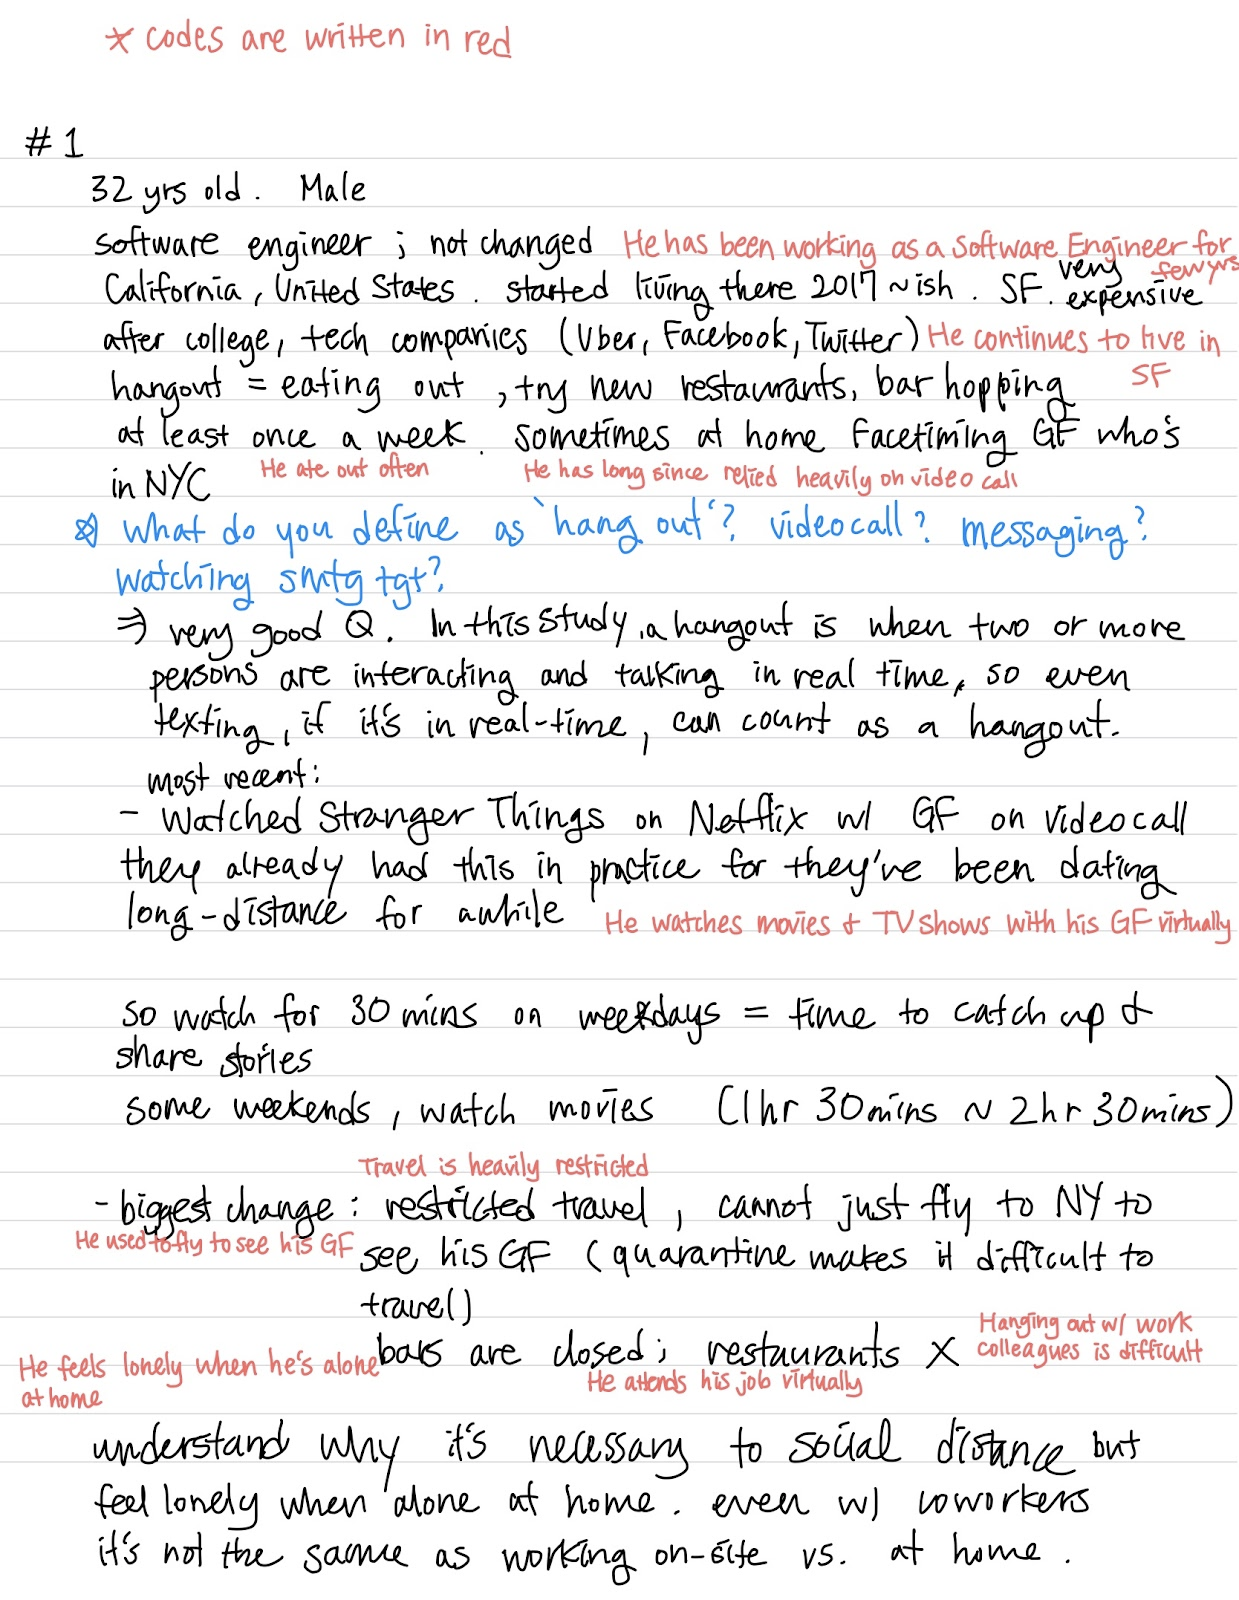 * codes are written in red
#1
32 yrs old. Male
software engineer ; not changed He has been working as a Software Engineer for few yrs
California, United States. started living there 2017 ~ish. SF. very expensive
after college, tech companies (Uber, Facebook, Twitter) He continues to live in SF
hangout = eating out, try new restaurants, bar hopping
at least once a week. sometimes at home Facetiming GF who's
in NYC He ate out often He has long since relied heavily on video call
What do you define as 'hang out'? videocall? messaging?
watching smtg tgt?
⇒ very good Q. In this study, a hangout is when two or more
persons are interacting and talking in real time, so even
texting, if it's in real-time, can count as a hangout.
most recent:
- Watched Stranger Things on Netflix w/ GF on videocall
they already had this in practice for they've been dating
long-distance for awhile He watches movies & TV shows with his GF virtually
so watch for 30 mins on weekdays = time to catch up &
share stories
some weekends, watch movies (1hr 30mins ~ 2hr 30mins)
Travel is heavily restricted
- biggest change : restricted travel, cannot just fly to NY to
He used to fly to see his GF see his GF (quarantine makes it difficult to
travel)
bars are closed; restaurants X Hanging out w/ work colleagues is difficult
He feels lonely when he's alone at home He attends his job virtually
understand why it's necessary to social distance but
feel lonely when alone at home. even w/ coworkers
it's not the same as working on-site vs. at home.